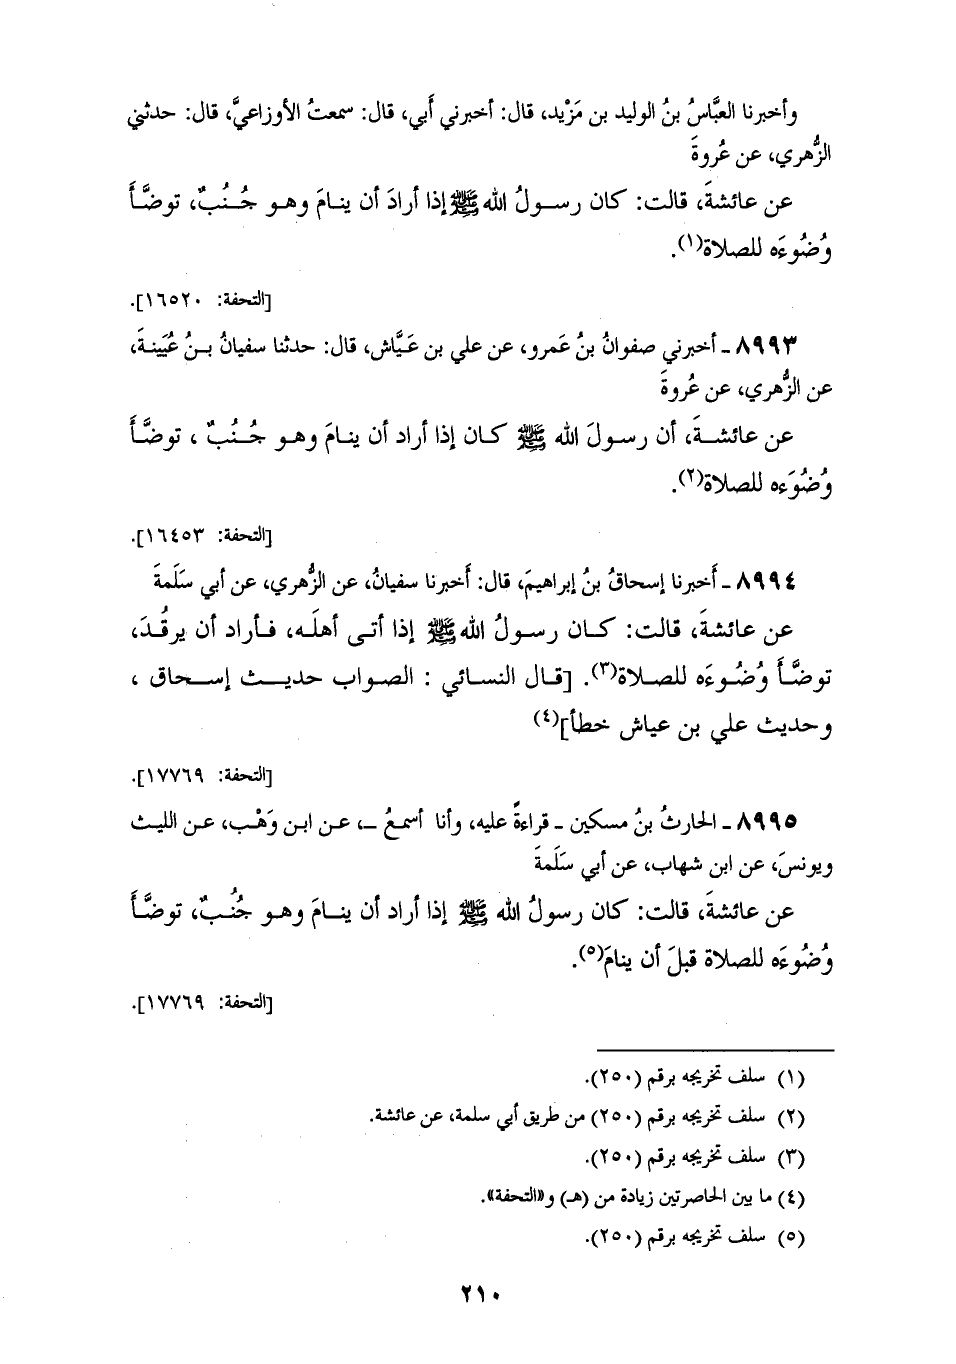 وأخبرنا العبَّاسُ بنُ الوليد بن مَزْيد، قال: أخبرني أَبي، قال: سمعتُ الأوزاعيَّ، قال: حدثني
الزُّهري، عن عُروةَ
عن عائشةَ، قالت: كان رسولُ الله ﷺ إذا أرادَ أن ينامَ وهو جُنُبٌ، توضَّأَ
وُضُوءَه للصلاة(١).
[التحفة: ١٦٥٢٠].
٨٩٩٣ ـ أخبرني صفوانُ بنُ عَمرو، عن علي بن عَيَّاش، قال: حدثنا سفيانُ بنُ عُيَينةَ،
عن الزُّهري، عن عُروةَ
عن عائشةَ، أن رسولَ الله ﷺ كان إذا أراد أن ينامَ وهو جُنُبٌ ، توضَّأَ
وُضُوءَه للصلاة(٢).
[التحفة: ١٦٤٥٣].
٨٩٩٤ ـ أَخبرنا إسحاقُ بنُ إبراهيمَ، قال: أَخبرنا سفيانُ، عن الزُّهري، عن أبي سَلَمةَ
عن عائشةَ، قالت: كان رسولُ الله ﷺ إذا أتى أهلَه، فأراد أن يرقُدَ،
توضَّأَ وُضُوءَه للصلاة(٣). [قال النسائي : الصواب حديث إسحاق ،
وحديث علي بن عياش خطأ](٤)
[التحفة: ١٧٧٦٩].
٨٩٩٥ ـ الحارثُ بنُ مسكين ـ قراءةً عليه، وأنا أسمعُ ـ، عن ابن وَهْب، عن الليث
ويونسَ، عن ابن شهاب، عن أبي سَلَمةَ
عن عائشةَ، قالت: كان رسولُ الله ﷺ إذا أراد أن ينامَ وهو جُنُبٌ، توضَّأَ
وُضُوءَه للصلاة قبلَ أن ينامَ(٥).
[التحفة: ١٧٧٦٩].
(١) سلف تخريجه برقم (٢٥٠).
(٢) سلف تخريجه برقم (٢٥٠) من طريق أبي سلمة، عن عائشة.
(٣) سلف تخريجه برقم (٢٥٠).
(٤) ما بين الحاصرتين زيادة من (هـ) و«التحفة».
(٥) سلف تخريجه برقم (٢٥٠).
٢١٠